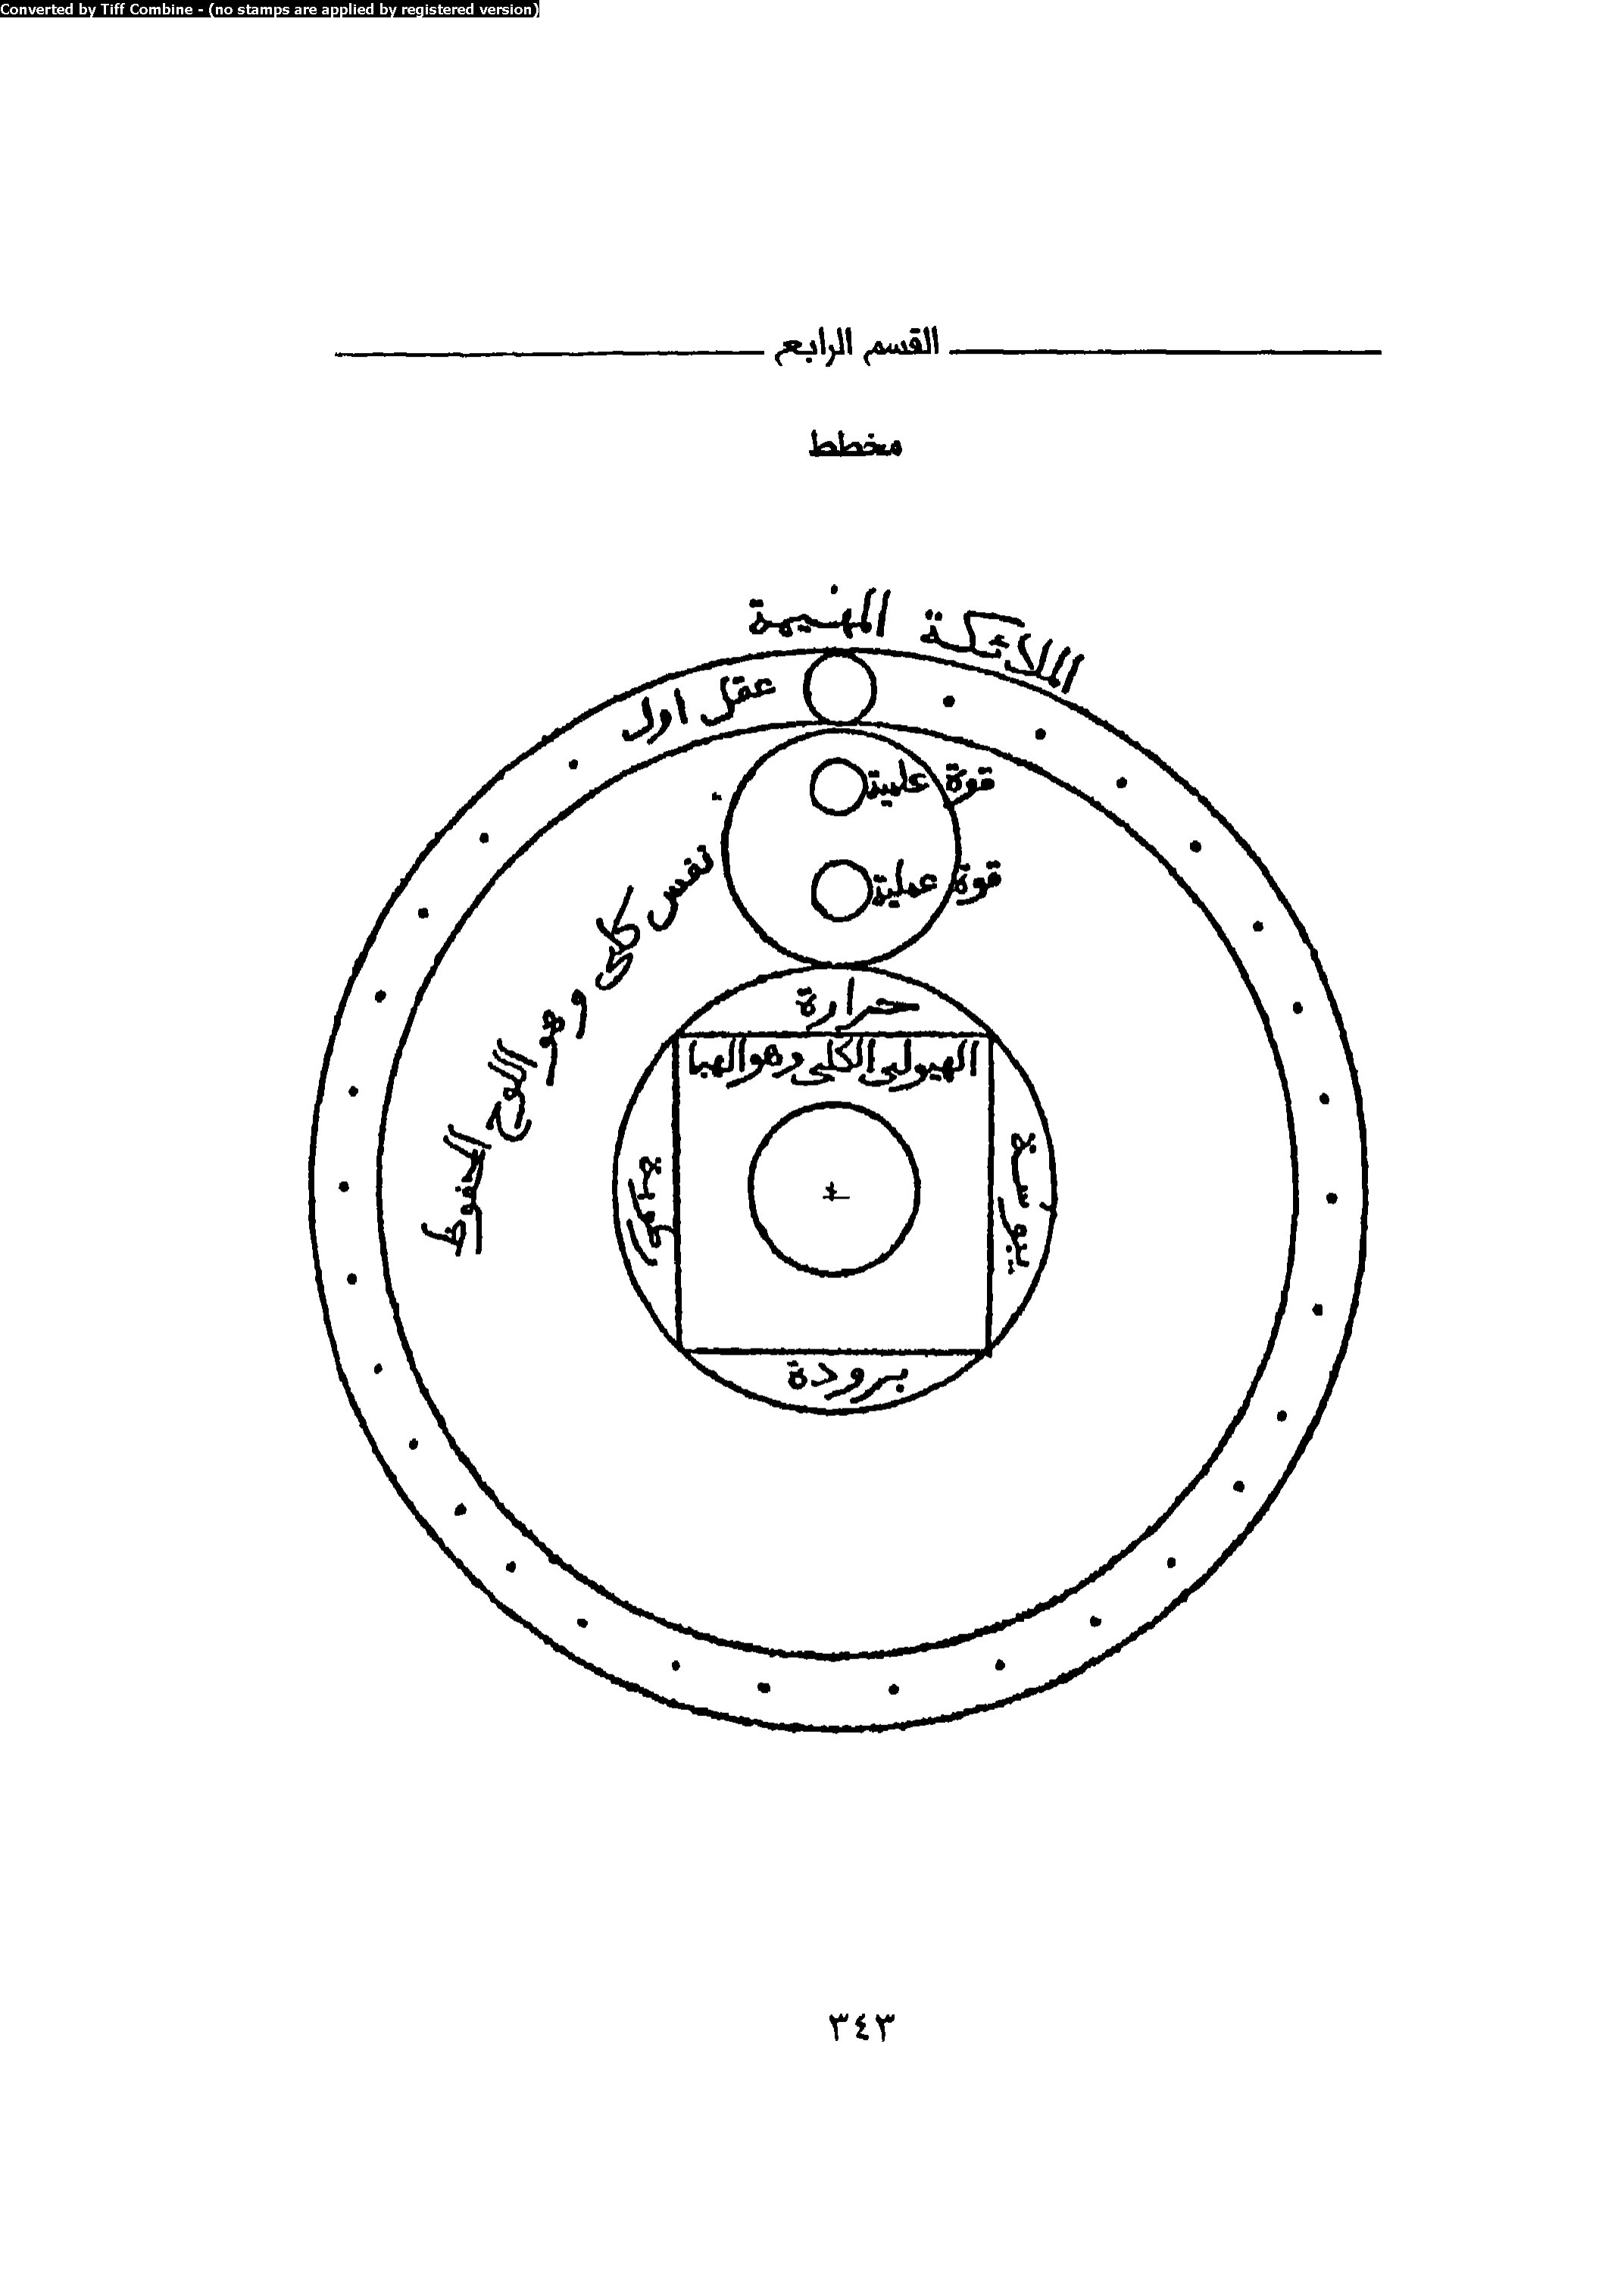 Converted by Tiff Combine - (no stamps are applied by registered version)
القسم الرابع
مخطط
الملائكة المهيمة
عقل اول
قوة علمية
قوة عملية
نفس كلى وهو اللوح المحفوظ
حرارة
الهيولى الكلى وهو الهبا
برودة
٣٤٣